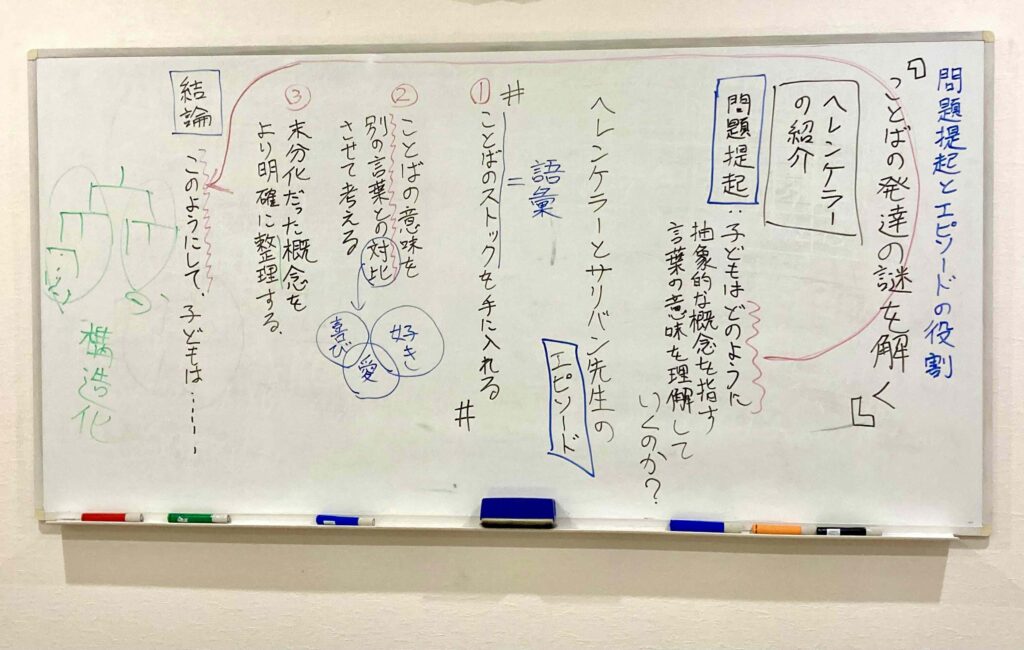 問題提起とエピソードの役割
『ことばの発達の謎を解く』
ヘレンケラー
の紹介
問題提起:子どもはどのように
抽象的な概念を指す
言葉の意味を理解して
いくのか?
ヘレンケラーとサリバン先生の
エピソード
#①ことばのストックを手に入れる#
=
語彙
②ことばの意味を
別の言葉との対比
させて考える
好き
喜び
愛
③未分化だった概念を
より明確に整理する。
結論 このようにして、子どもは……
構造化